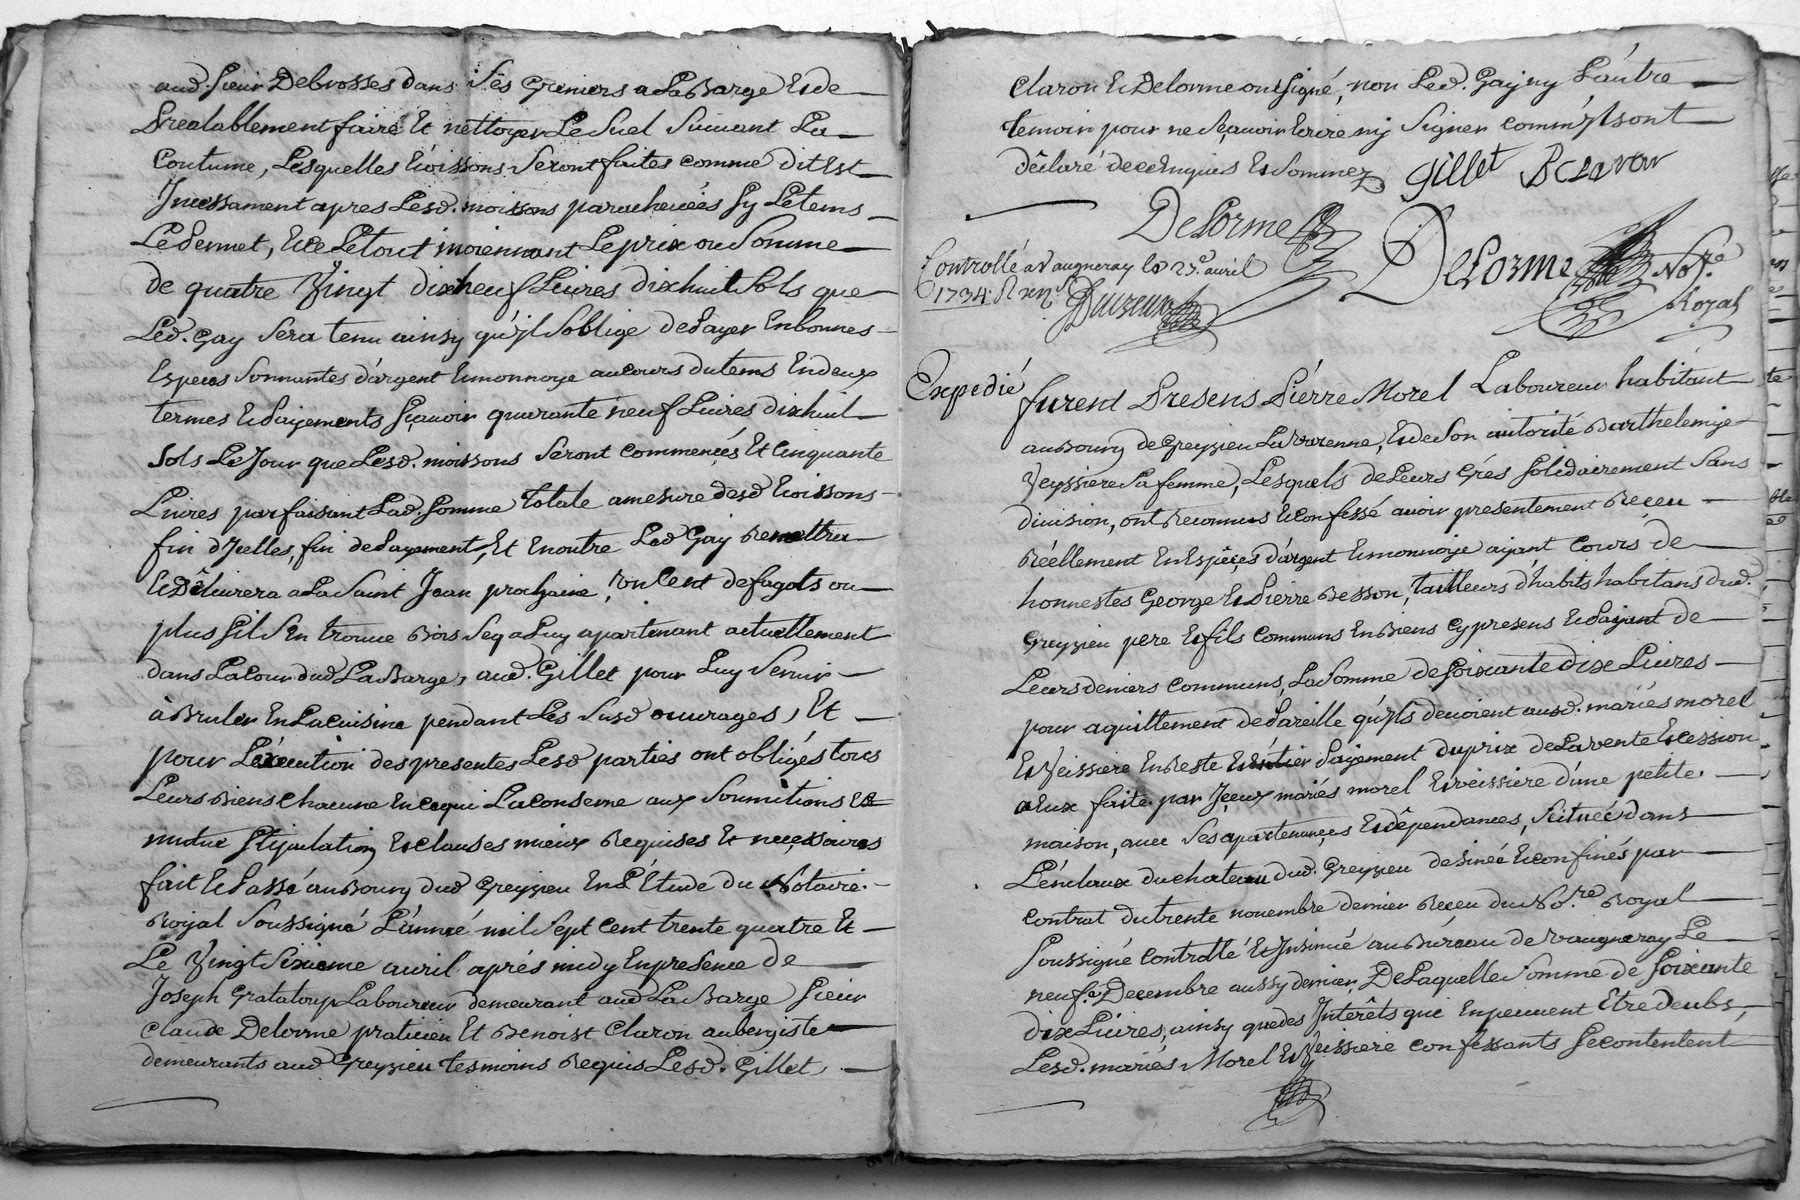 aud. sieur Debrosses dans ses greniers a La Barge Et de
Prealablement faire Et nettoyer Le Suel Suivant La
Coutume, Lesquelles Ecoissons Seront faites comme dit Est
Incessament apres Lesd. moissons parachevées sy Le tems
Le Permet, Et Ce Le tout moiennant Le prix ou Somme
de quatre Vingt dix neuf Livres dix huit Sols que
Led. Gay Sera tenu ainsy qu'jl S'oblige de Payer En bonnes
Especes Sonnantes d'argent Et monnoye au cours du tems En deux
termes Et Payements Sçavoir quarante neuf Livres dix huit
Sols Le Jour que Lesd. moissons Seront commencées Et Cinquante
Livres parfaisant Lad. Somme totale a mesure desd. Ecoissons
fin d'Jcelles, fin de Payement, Et En outre Led Gay Remettra
Et Délivrera a La Saint Jean prochaine, un Cent de fagots ou
plus s'il S'en trouve Bois Seq a Luy apartenant actuellement
dans La Cour dud La Barge, aud. Gillet pour Luy Servir
à Bruler En La cuisine pendant Les Susd ouvrages, Et
pour L'éxécution des presentes Lesd parties ont obligés tous
Leurs Biens chacune En ce qui La Conserne aux Soumitions Et
mutue Stipulation Et clauses mieux Requises Et necessaires
fait Et Passé au Bourg dud Greyzieu En L'Etude du Notaire
Royal Soussigné L'année mil Sept Cent trente quatre Et
Le Vingt Sixieme avril aprés midy En presence de
Joseph Grataloup Laboureur demeurant aud La Barge Sieur
Claude Delorme praticien Et Benoist Claron aubergiste
demeurants aud Greyzieu tesmoins Requis Lesd. Gillet
Claron Et Delorme ont Signé, non Led. Gay ny L'autre
temoin pour ne Sçavoir Ecrire ny Signer comm'jls ont
dêclaré de ce Enquis Et Sommez Gillet B Claron
Delorme Delorme No.re
Royal
Controllé a Vaugneray le 27.e avril
1734. R
Expedié
furent Presens Pierre Morel Laboureur habitant
au Bourg de Greyzieu La Varenne, Et de Son autorité Barthelemye
Veyssiere Sa femme, Lesquels de Leurs Grés Solidairement Sans
division, ont Reconnus Et Confessé avoir presentement Reçeu
Réellement En Espêçes d'argent Et monnoije ajant Cours de
honnestes George Et Pierre Besson, tailleurs d'habits habitans dud.
Greyzieu pere Et fils Communs En Biens Cy presens Et Pajant de
Leurs deniers Communs, La Somme de Soixante dix Livres
pour aquittement de Pareille qu'jls devoient ausd. mariés morel
Et Veissiere En Reste Et Entier Pajement du prix de La vente Et Cession
a Eux faite par Jçeux mariés morel Et veissiere d'une petite
maison, avec Ses apartenançes Et dêpendances, Scituée dans
L'énclaux du chateau dud. Greyzieu desinée Et Confinés par
Contrat du trente novembre dernier Reçeu du No.re Royal
Soussigné Controllé Et Jnsinué au Büreau de Vaugneray Le
neuf.e Decembre aussy dernier, De Laquelle Somme de Soixante
dix Livres, ainsy que des Jntérêts qui En peuvent Etre deubs,
Lesd. mariés Morel Et Veissiere Confessants Se contentent